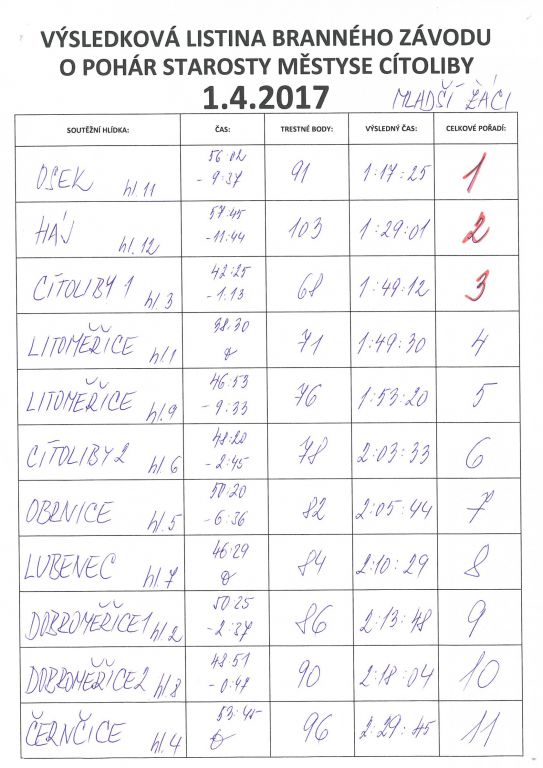 VÝSLEDKOVÁ LISTINA BRANNÉHO ZÁVODU
O POHÁR STAROSTY MĚSTYSE CÍTOLIBY
1.4.2017 MLADŠÍ ŽÁCI
SOUTĚŽNÍ HLÍDKA: ČAS: TRESTNÉ BODY: VÝSLEDNÝ ČAS: CELKOVÉ POŘADÍ:
56:02
OSEK hl. 11 - 9:37 91 1:17:25 1
57:45
HÁJ hl. 12 - 11:44 103 1:29:01 2
42:25
CÍTOLIBY 1 hl. 3 - 1:13 68 1:49:12 3
38:30
LITOMĚŘICE hl. 1 0 71 1:49:30 4
46:53
LITOMĚŘICE hl. 9 - 9:33 76 1:53:20 5
48:20
CÍTOLIBY 2 hl. 6 - 2:45 78 2:03:33 6
50:20
OBRNICE hl. 5 - 6:36 82 2:05:44 7
46:29
LUBENEC hl. 7 0 84 2:10:29 8
50:25
DOBROMĚŘICE 1 hl. 2 - 2:37 86 2:13:48 9
48:51
DOBROMĚŘICE 2 hl. 8 - 0:47 90 2:18:04 10
53:45
ČERNČICE hl. 4 0 96 2:29:45 11